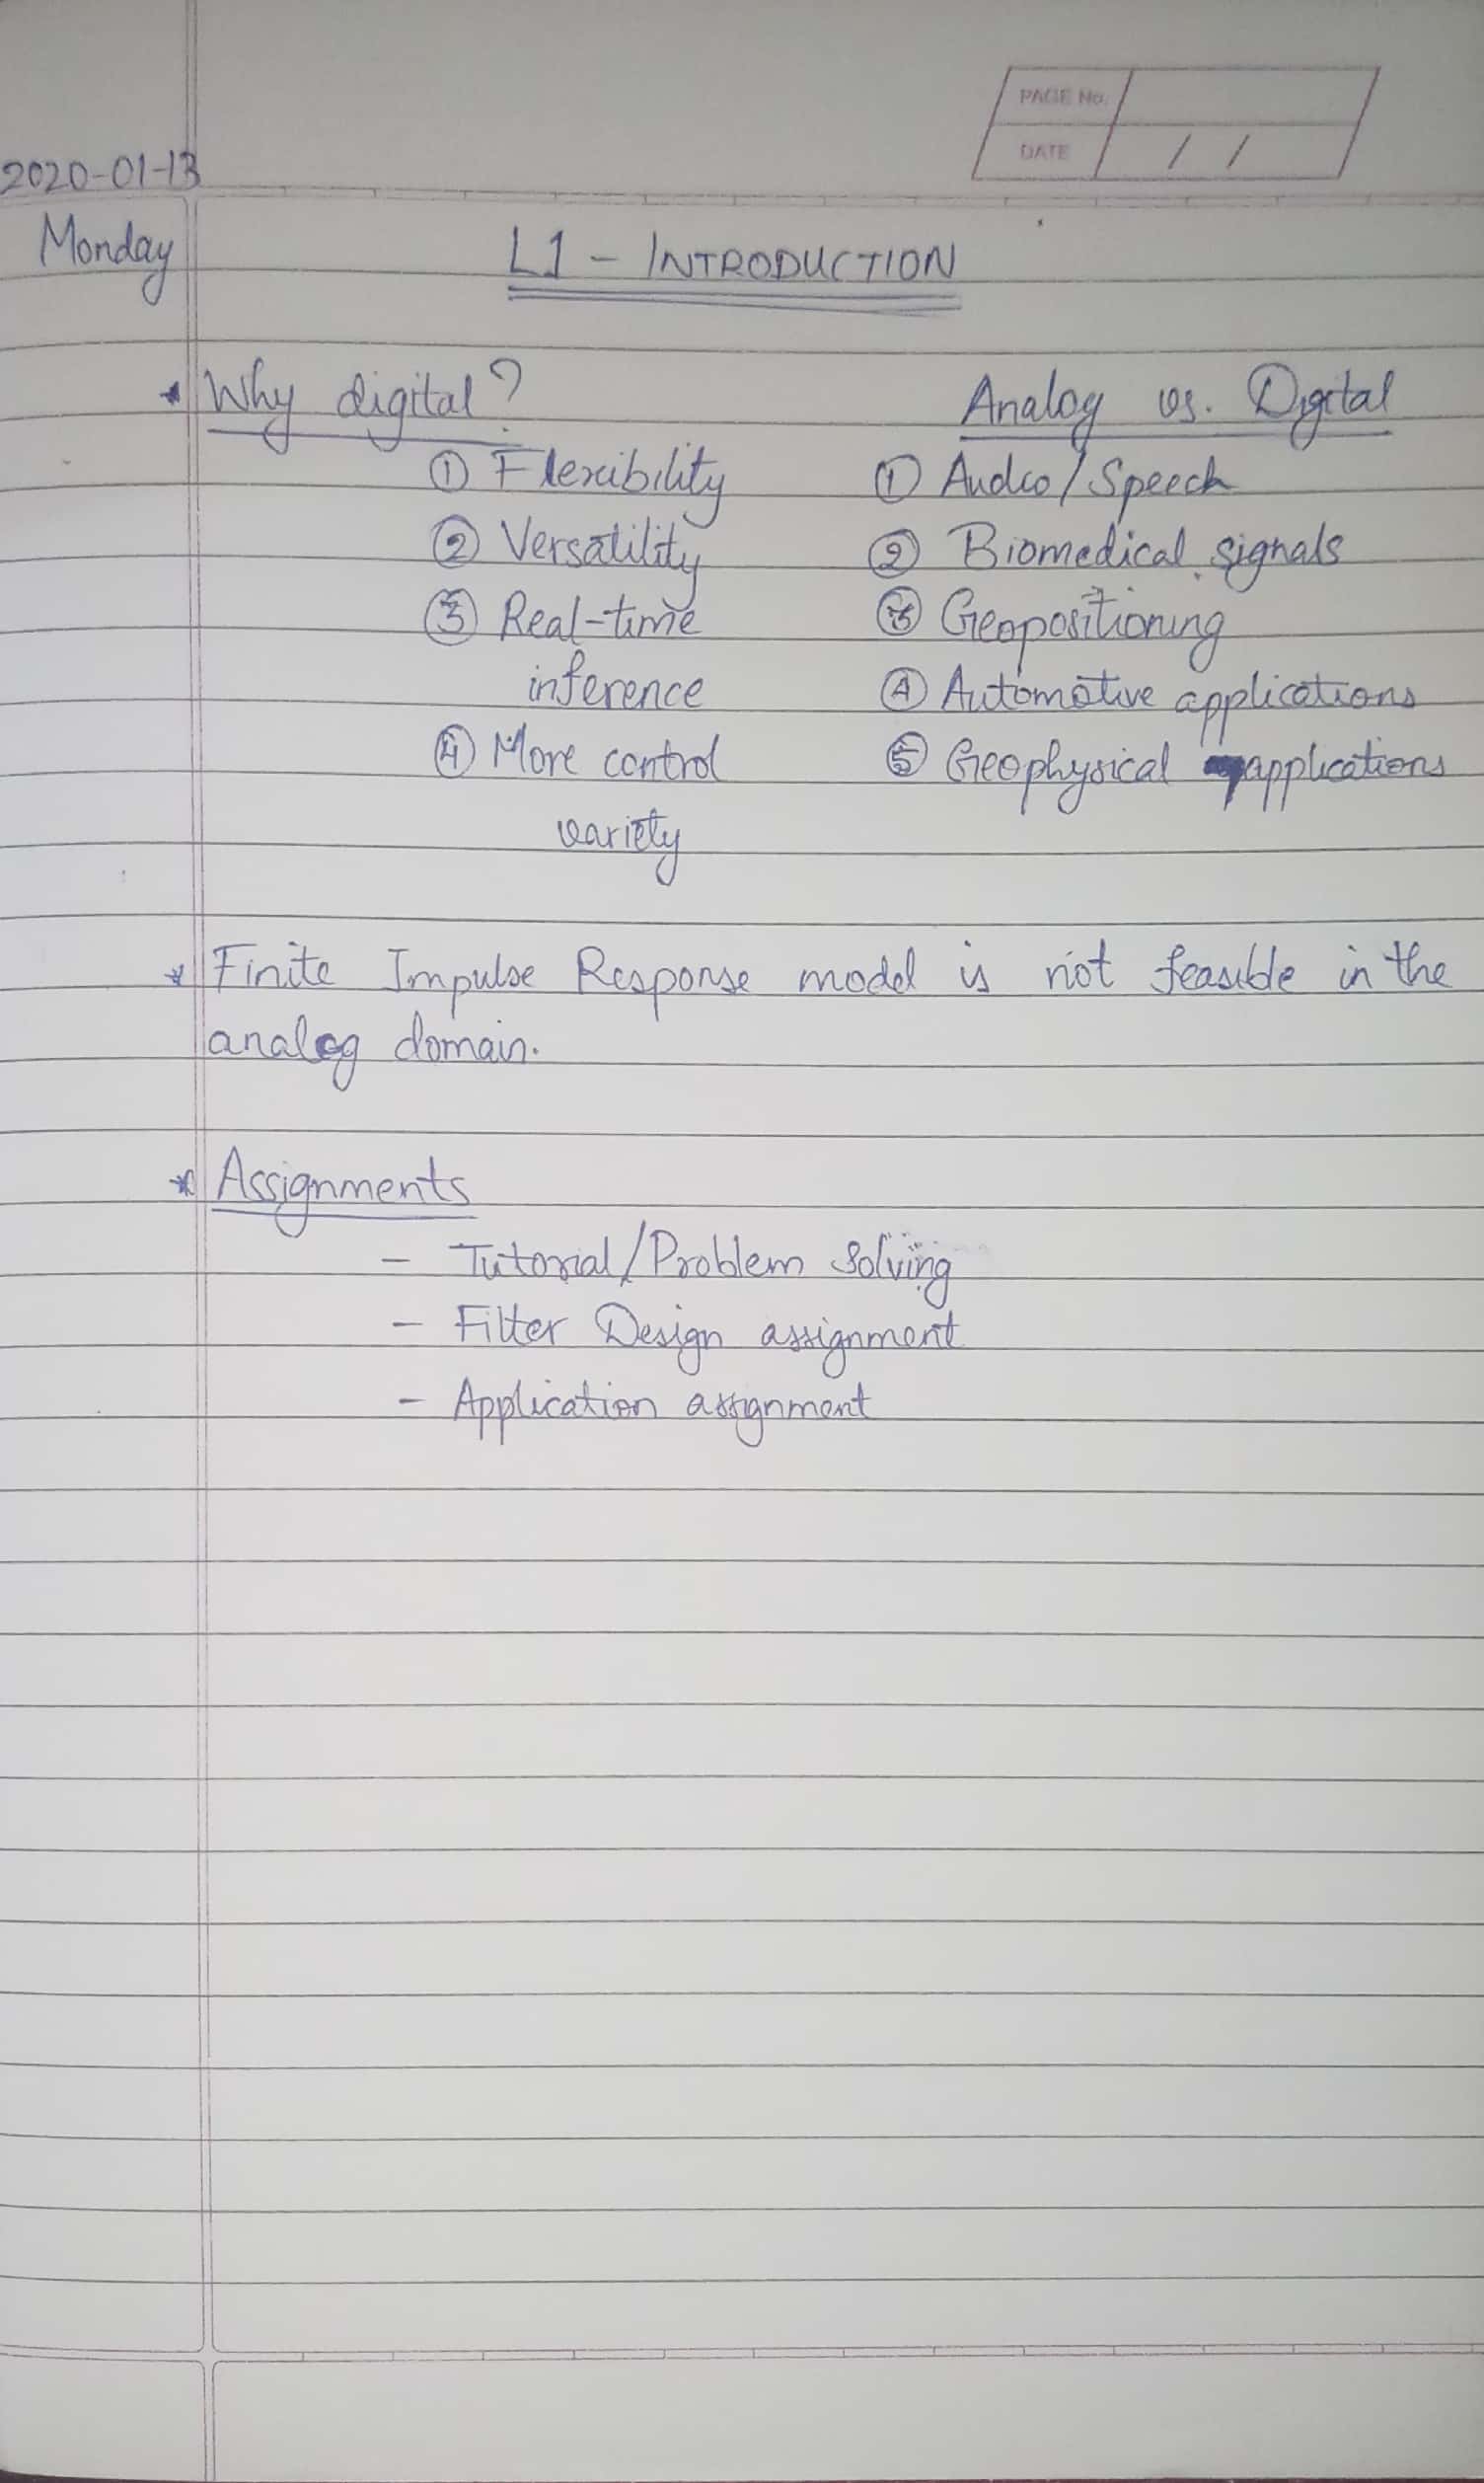 PAGE No.
DATE / /
2020-01-13
Monday
L1 - INTRODUCTION
* Why digital?
① Flexibility
② Versatility
③ Real-time
inference
④ More control
variety
Analog vs. Digital
① Audio/Speech
② Biomedical signals
③ Geopositioning
④ Automotive applications
⑤ Geophysical applications
* Finite Impulse Response model is not feasible in the
analog domain.
* Assignments
- Tutorial/Problem Solving
- Filter Design assignment
- Application assignment